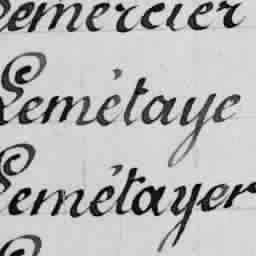 Lemercier
Lemétaye
Lemétayer